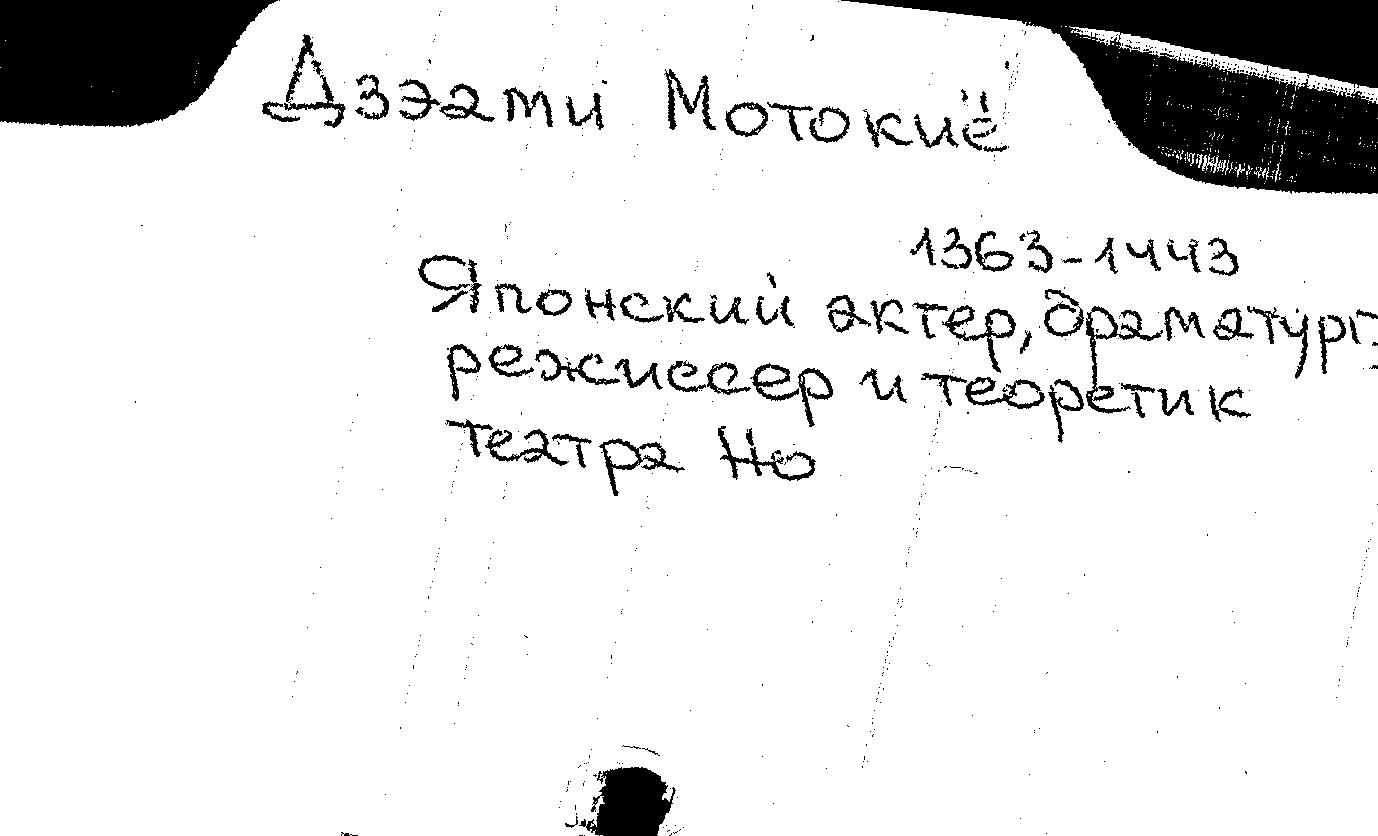 Дзэами Мотокиё
1363-1443
Японский актер, драматург,
режиссер и теоретик
театра Но